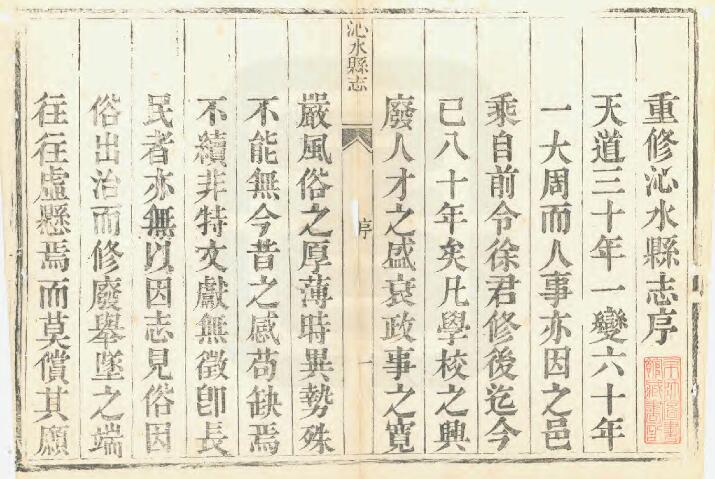 重修沁水縣志序
天道三十年一變六十年
一大周而人事亦因之邑
乘自前令徐君修後迄今
已八十年矣凡學校之興
廢人才之盛衰政事之寛
沁水縣志
序
一
嚴風俗之厚薄時異勢殊
不能無今昔之感苟缺焉
不續非特文獻無徵卽長
民者亦無以因志見俗因
俗出治而修廢舉墜之端
往往虛懸焉而莫償其願